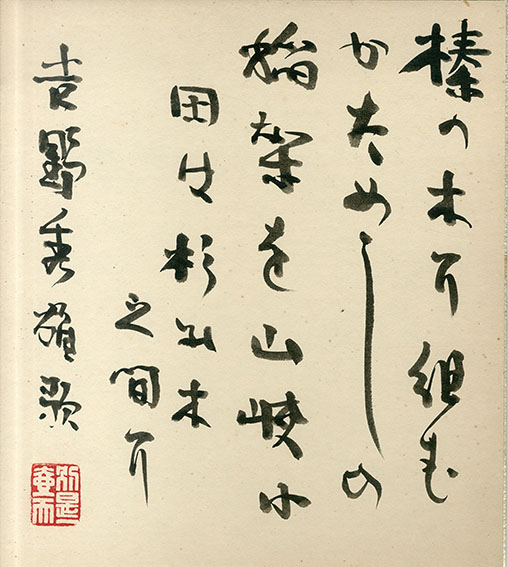 榛の木に組む
かためしの
稲架を山峡小
田は杉の木
之間に
吉野秀雄歌